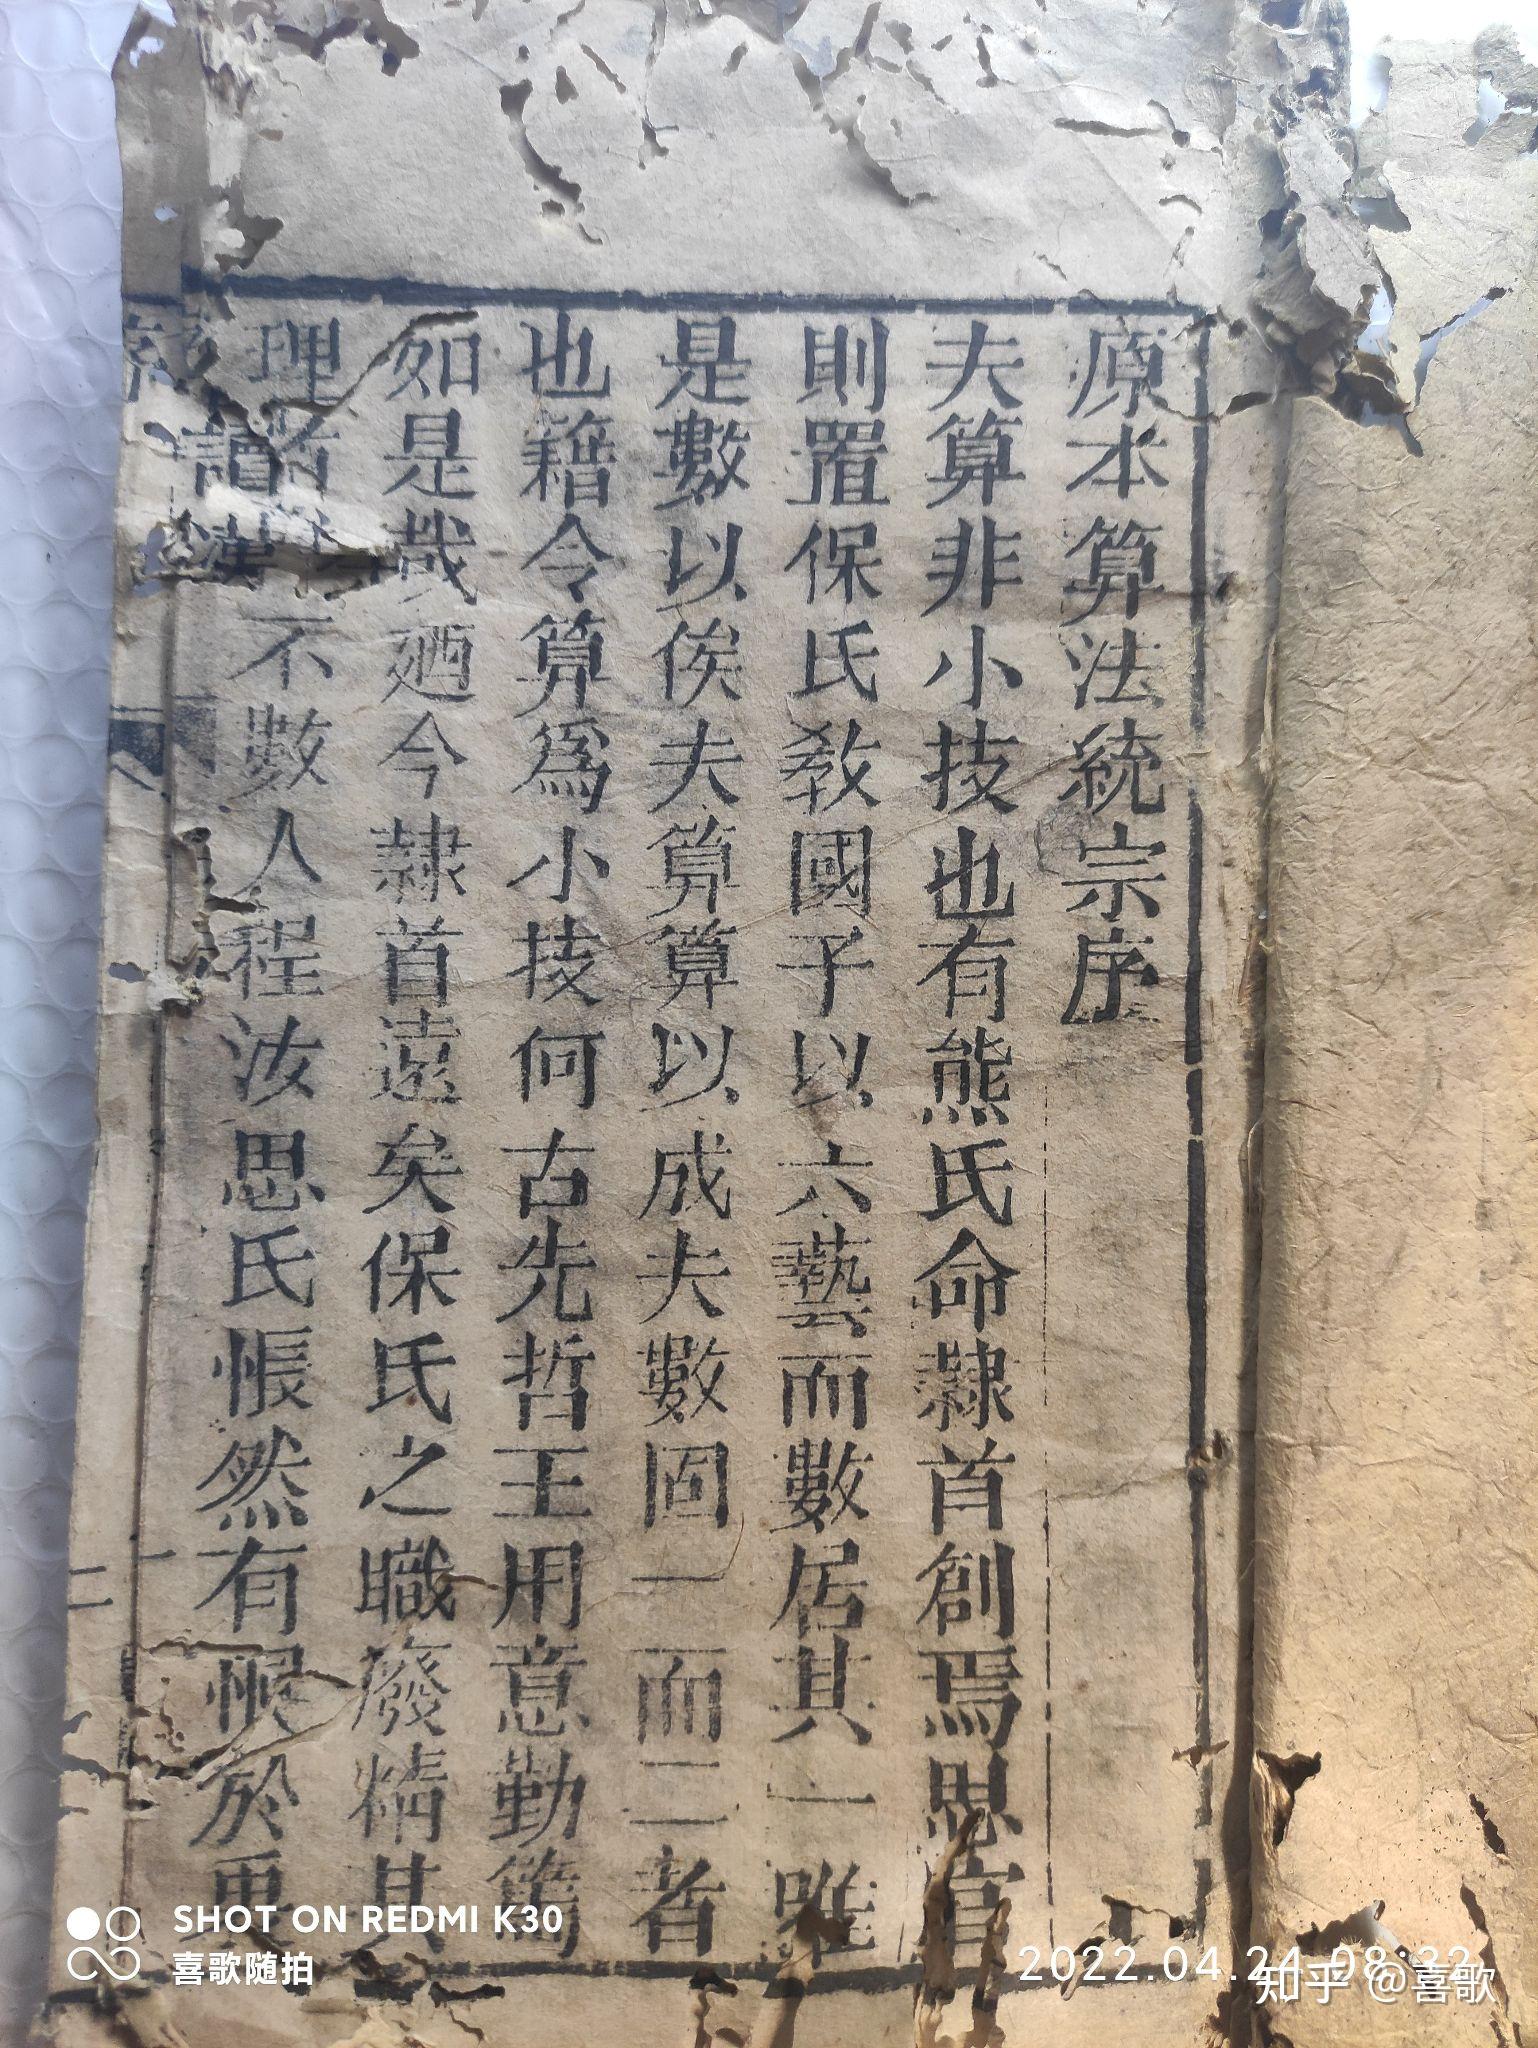 原本算法統宗序
夫算非小技也有熊氏命隸首創焉思官
則置保氏教國子以六藝而數居其一唯
是數以俟夫算算以成夫數固一而二者
也籍令算為小技何古先哲王用意勤篤
如是哉廼今隸首遠矣保氏之職廢精其
理者不數人程汝思氏悵然有慨於
讀
二
SHOT ON REDMI K30
喜歌随拍
2022.04.24 08:32
知乎 @喜歌